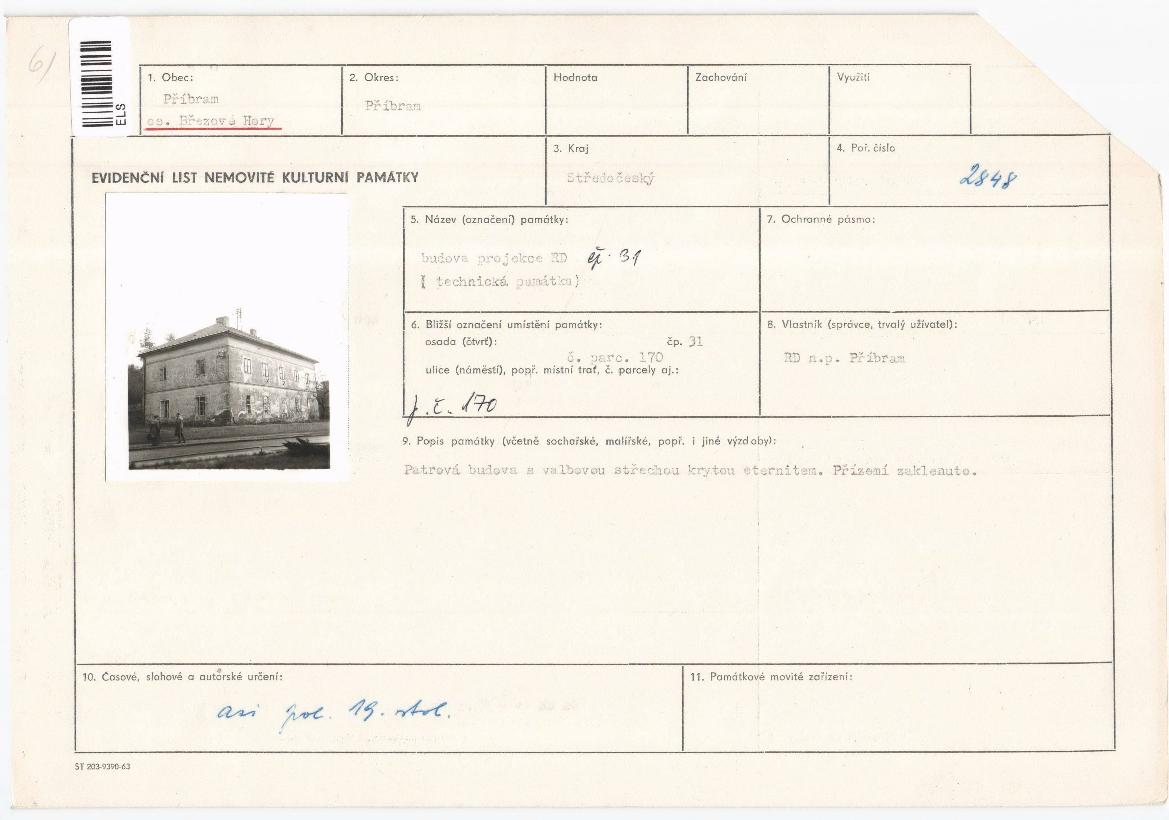 6)
ELS
1. Obec:
Příbram
os. Březové Hory
2. Okres:
Příbram
Hodnota
Zachování
Využití
EVIDENČNÍ LIST NEMOVITÉ KULTURNÍ PAMÁTKY
3. Kraj
Středočeský
4. Poř. číslo
2848
5. Název (označení) památky:
budova projekce RD čp. 31
( technická památka)
7. Ochranné pásmo:
6. Bližší označení umístění památky:
osada (čtvrť): čp. 31
č. parc. 170
ulice (náměstí), popř. místní trať, č. parcely aj.:
p.č. 170
8. Vlastník (správce, trvalý uživatel):
RD n.p. Příbram
9. Popis památky (včetně sochařské, malířské, popř. i jiné výzdoby):
Patrová budova s valbovou střechou krytou eternitem. Přízemí zaklenuto.
10. Časové, slohové a autorské určení:
asi pol. 19. stol.
11. Památkové movité zařízení:
ST 203-9390-63